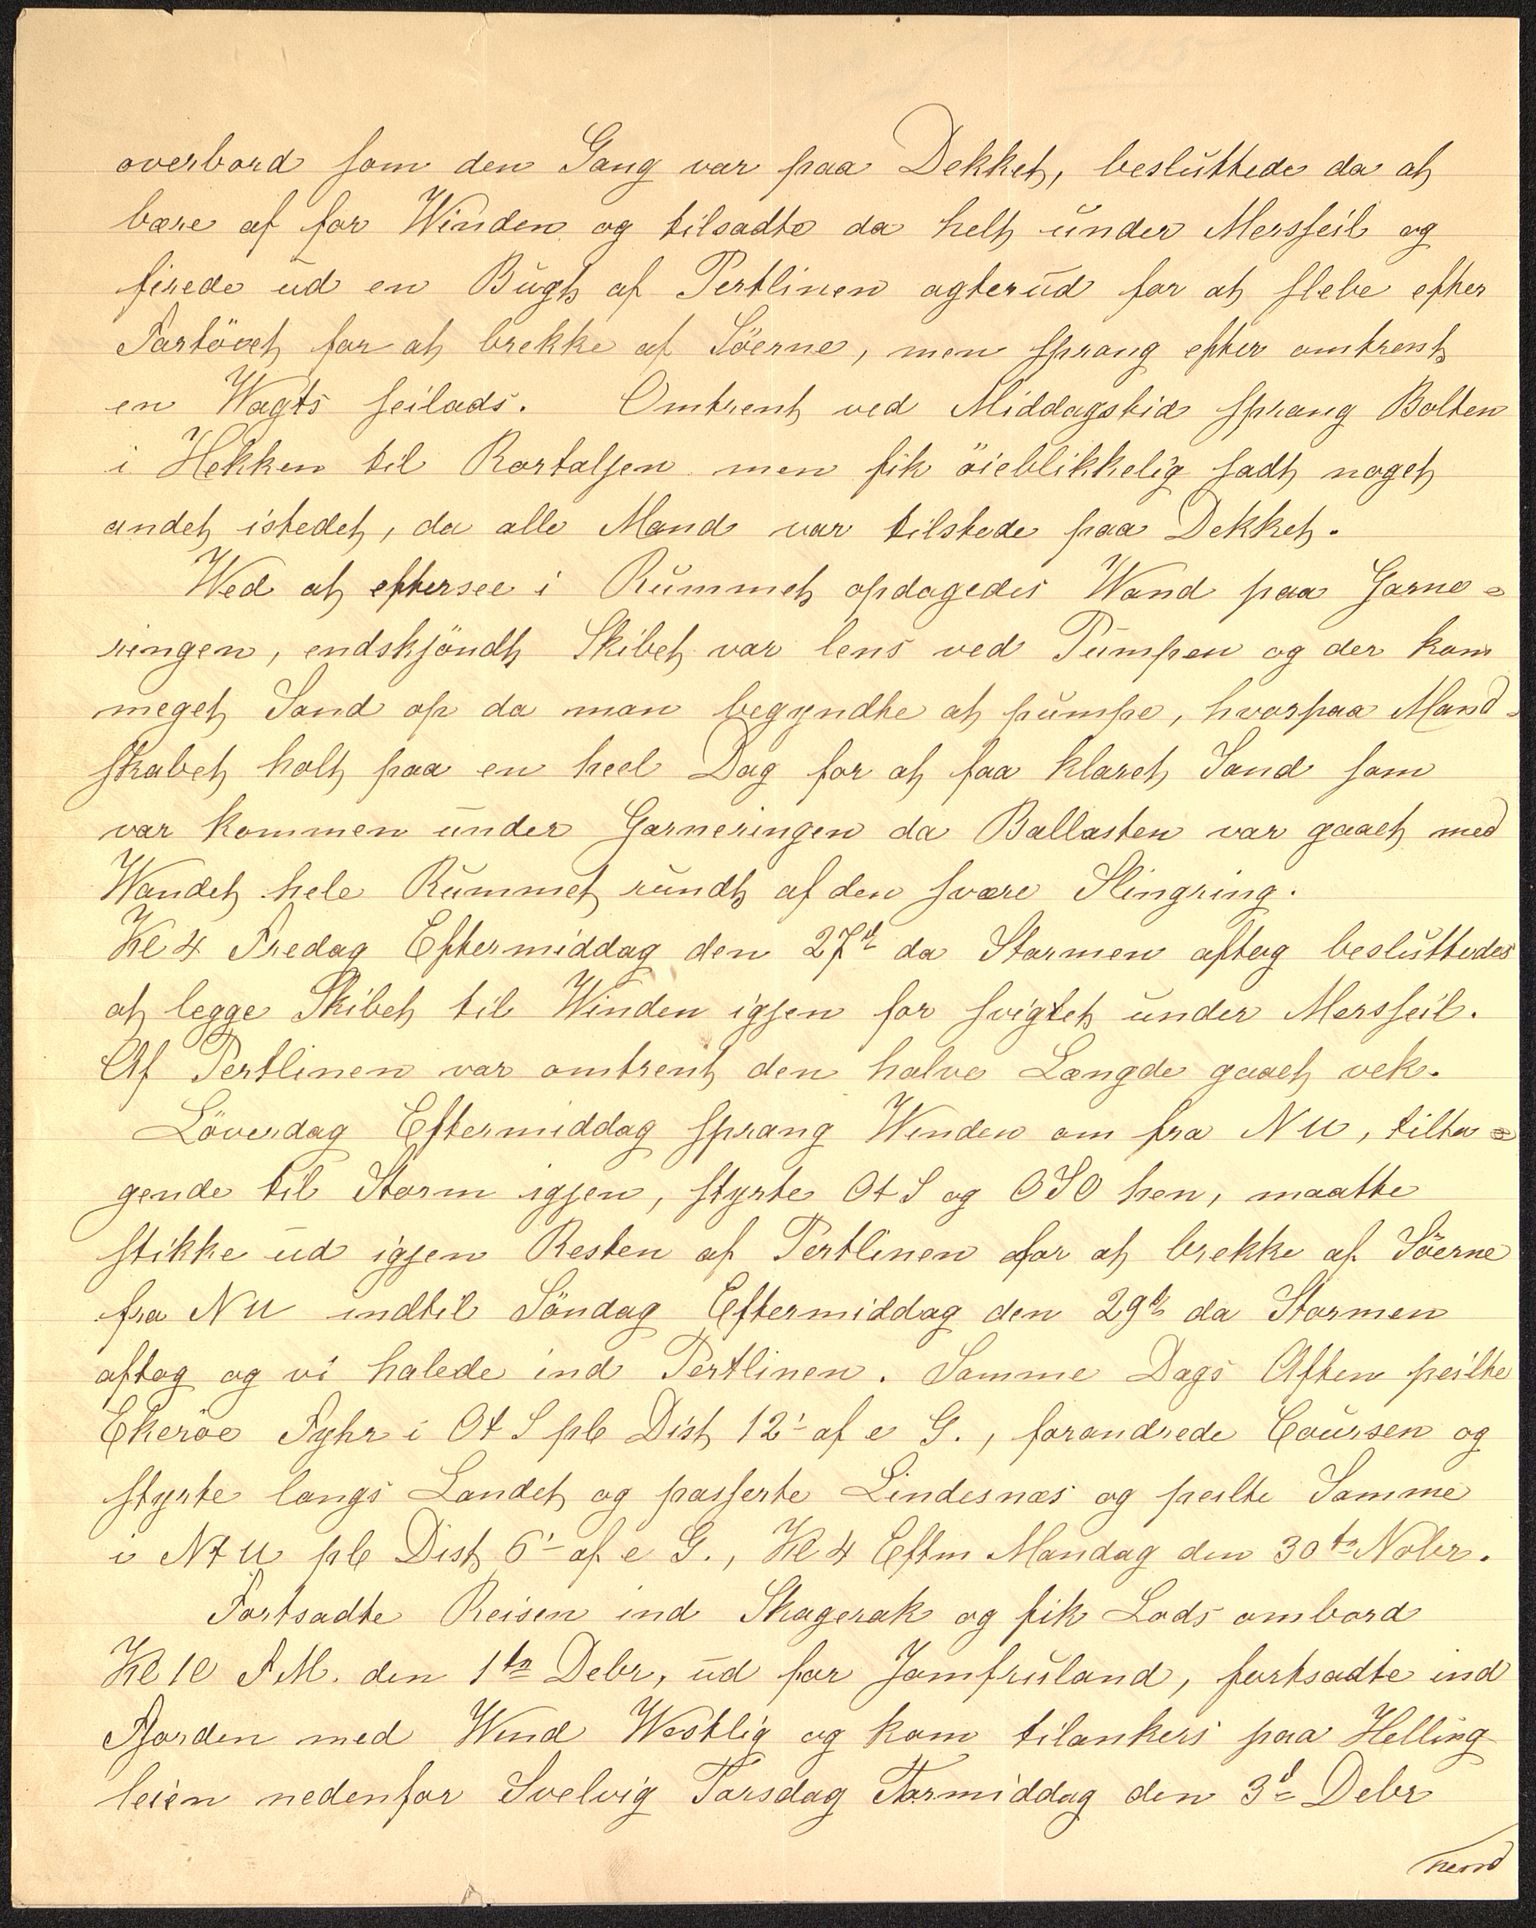 overbord som den Gang var paa Dekket, besluttede da at
bære af for Winden og tilsadte da helt under Mersseil og
firede ud en Bugt af Pertlinen agterud for at slebe efter
Fartöiet for at brekke af Söerne, men sprang efter omtrent
en Wagts seilads. Omtrent ved Middagstid sprang Bolten
i Hekken til Rortaljen men fik öieblikkelig sadt noget
andet istedet, da alle Mand var tilstede paa Dekket.
Wed at eftersee i Rummet opdagedes Wand paa Garne=
ringen, endskjöndt Skibet var lens ved Pumpen og der kom
meget Sand op da man begyndte at pumpe, hvorpaa Mand-
skabet holt paa en heel Dag for at faa klaret Sand som
var kommen under Garneringen da Ballasten var gaaet med
Wandet hele Rummet rundt af den svære Slingring.
Kl 4 Fredag Eftermiddag den 27d da Stormen aftog besluttedes
at legge Skibet til Winden igjen for svigtet under Mersseil.
Af Pertlinen var omtrent den halve Længde gaaet vek.
Löverdag Eftermiddag sprang Winden om fra NW, tilta=
gende til Storm igjen, styrte OtS og OSO hen, maatte
stikke ud igjen Resten af Pertlinen for at brekke af Söerne
fra NW indtil Söndag Eftermiddag den 29de da Stormen
aftog og vi halede ind Pertlinen. Samme Dags Aften peilte
Ekeröe Fyhr i OtS pb Dist 12' af e G., forandrede Coursen og
styrte langs Landet og passerte Lindesnæs og peilte Samme
i NtW pb Dist 6' af e G., Kl 4 Eftm Mandag den 30te Nobr.
Fortsadte Reisen ind Skagerak og fik Lods ombord
Kl 10 FM. den 1te Debr, ud for Jomfruland, fortsadte ind
Fjorden med Wind Westlig og kom tilankers paa Helling
leien nedenfor Svelvig Torsdag Formiddag den 3d Debr
vend